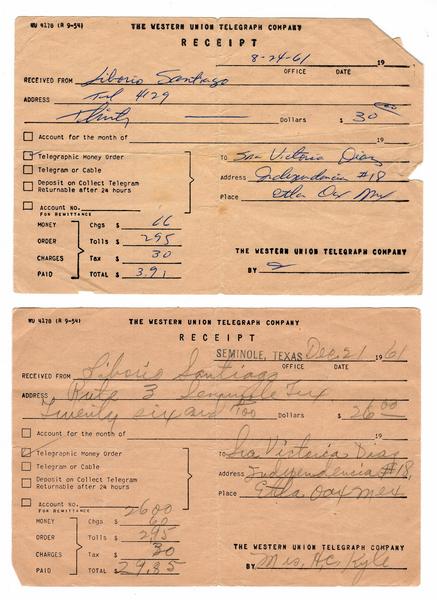 WU 4178 (R 9-54) THE WESTERN UNION TELEGRAPH COMPANY
RECEIPT
8-24-61 19
OFFICE DATE
RECEIVED FROM Liborio Santiago
ADDRESS Tel 4129
Thirty Dollars $ 30 00
Account for the month of
Telegraphic Money Order TO Sra Victoria Diaz
Telegram or Cable Address Independencia #18
Deposit on Collect Telegram
Returnable after 24 hours Place Etla Oax Mex
Account No.
FOR REMITTANCE
MONEY Chgs $ 66
ORDER Tolls $ 295
CHARGES Tax $ 30
PAID TOTAL $ 3.91
THE WESTERN UNION TELEGRAPH COMPANY
BY
WU 4178 (R 9-54) THE WESTERN UNION TELEGRAPH COMPANY
RECEIPT
SEMINOLE, TEXAS Dec 21 1961
OFFICE DATE
RECEIVED FROM Liborio Santiago
ADDRESS Rute 3 Seminole Tex
Twenty six and Dollars $ 26 00
Account for the month of
Telegraphic Money Order TO Sra Victoria Diaz
Telegram or Cable Address Independencia #18,
Deposit on Collect Telegram
Returnable after 24 hours Place Etla Oax Mex
Account No.
FOR REMITTANCE 2600
MONEY Chgs $ 60
ORDER Tolls $ 295
CHARGES Tax $ 30
PAID TOTAL $ 29.85
THE WESTERN UNION TELEGRAPH COMPANY
BY Mrs. H.C. Kyle